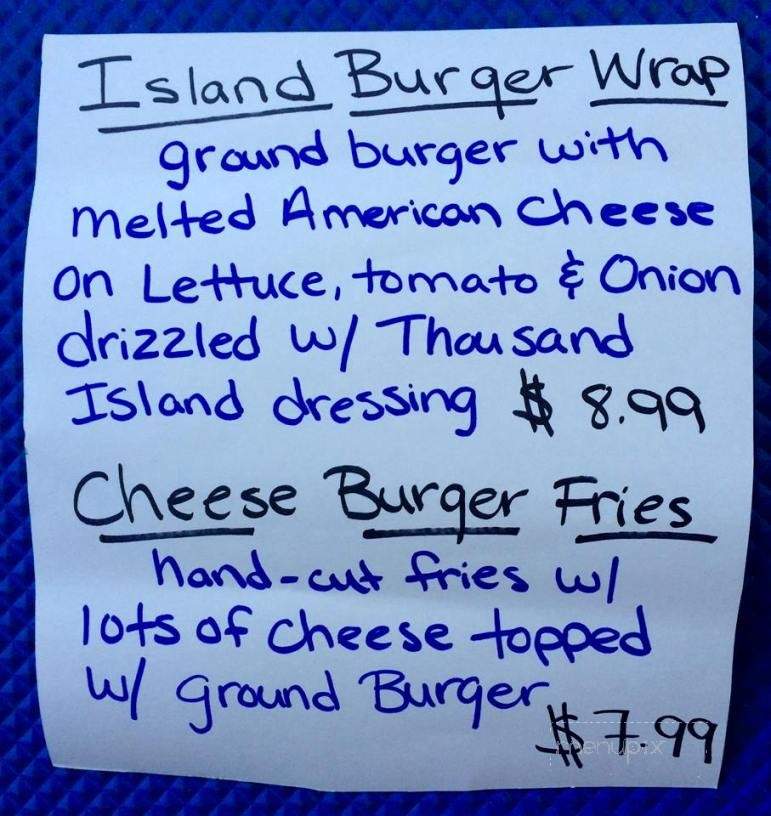 Island Burger Wrap
ground burger with
melted American Cheese
on Lettuce, tomato & Onion
drizzled w/ Thousand
Island dressing $ 8.99
Cheese Burger Fries
hand-cut fries w/
lots of cheese topped
w/ ground Burger
$7.99
menupix